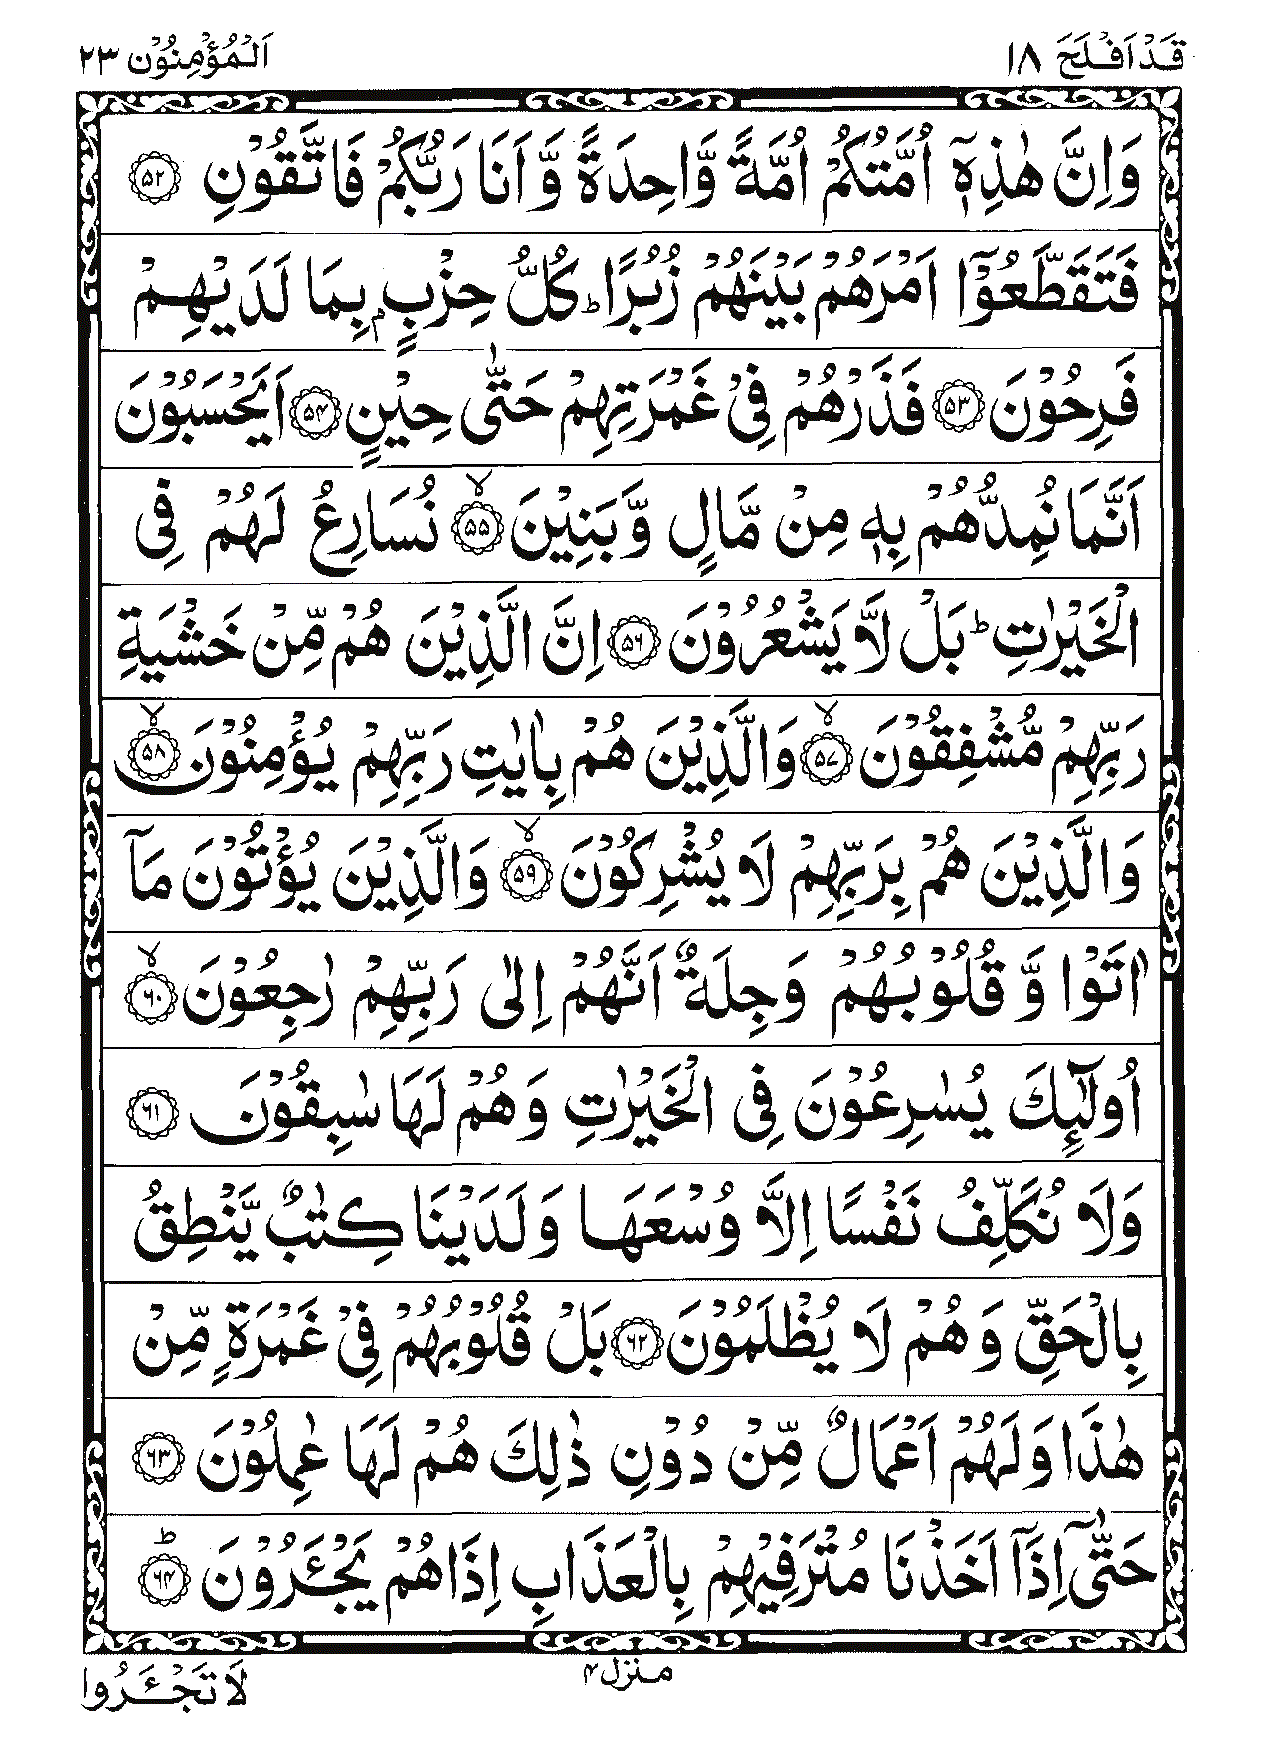 قَدْ اَفْلَحَ ۱۸
اَلْمُؤْمِنُوْن ۲۳
وَاِنَّ هٰذِهٖۤ اُمَّتُكُمْ اُمَّةً وَّاحِدَةً وَّ اَنَا رَبُّكُمْ فَاتَّقُوْنِ ﴿۵۲﴾
فَتَقَطَّعُوْۤا اَمْرَهُمْ بَيْنَهُمْ زُبُرًا ؕ كُلُّ حِزْبٍۭ بِمَا لَدَيْهِمْ
فَرِحُوْنَ ﴿۵۳﴾ فَذَرْهُمْ فِيْ غَمْرَتِهِمْ حَتّٰى حِيْنٍ ﴿۵۴﴾ اَيَحْسَبُوْنَ
اَنَّمَا نُمِدُّهُمْ بِهٖ مِنْ مَّالٍ وَّ بَنِيْنَ ﴿۵۵﴾ۙ نُسَارِعُ لَهُمْ فِى
الْخَيْرٰتِ ؕ بَلْ لَّا يَشْعُرُوْنَ ﴿۵۶﴾ اِنَّ الَّذِيْنَ هُمْ مِّنْ خَشْيَةِ
رَبِّهِمْ مُّشْفِقُوْنَ ﴿۵۷﴾ۙ وَالَّذِيْنَ هُمْ بِاٰيٰتِ رَبِّهِمْ يُؤْمِنُوْنَ ﴿۵۸﴾ۙ
وَالَّذِيْنَ هُمْ بِرَبِّهِمْ لَا يُشْرِكُوْنَ ﴿۵۹﴾ۙ وَالَّذِيْنَ يُؤْتُوْنَ مَاۤ
اٰتَوْا وَّ قُلُوْبُهُمْ وَجِلَةٌ اَنَّهُمْ اِلٰى رَبِّهِمْ رٰجِعُوْنَ ﴿۶۰﴾ۙ
اُولٰٓئِكَ يُسٰرِعُوْنَ فِى الْخَيْرٰتِ وَهُمْ لَهَا سٰبِقُوْنَ ﴿۶۱﴾
وَلَا نُكَلِّفُ نَفْسًا اِلَّا وُسْعَهَا وَلَدَيْنَا كِتٰبٌ يَّنْطِقُ
بِالْحَقِّ وَهُمْ لَا يُظْلَمُوْنَ ﴿۶۲﴾ بَلْ قُلُوْبُهُمْ فِيْ غَمْرَةٍ مِّنْ
هٰذَا وَلَهُمْ اَعْمَالٌ مِّنْ دُوْنِ ذٰلِكَ هُمْ لَهَا عٰمِلُوْنَ ﴿۶۳﴾
حَتّٰىۤ اِذَاۤ اَخَذْنَا مُتْرَفِيْهِمْ بِالْعَذَابِ اِذَا هُمْ يَجْـَٔرُوْنَ ﴿۶۴﴾ؕ
منزل ۴
لَا تَجْـَٔرُوا